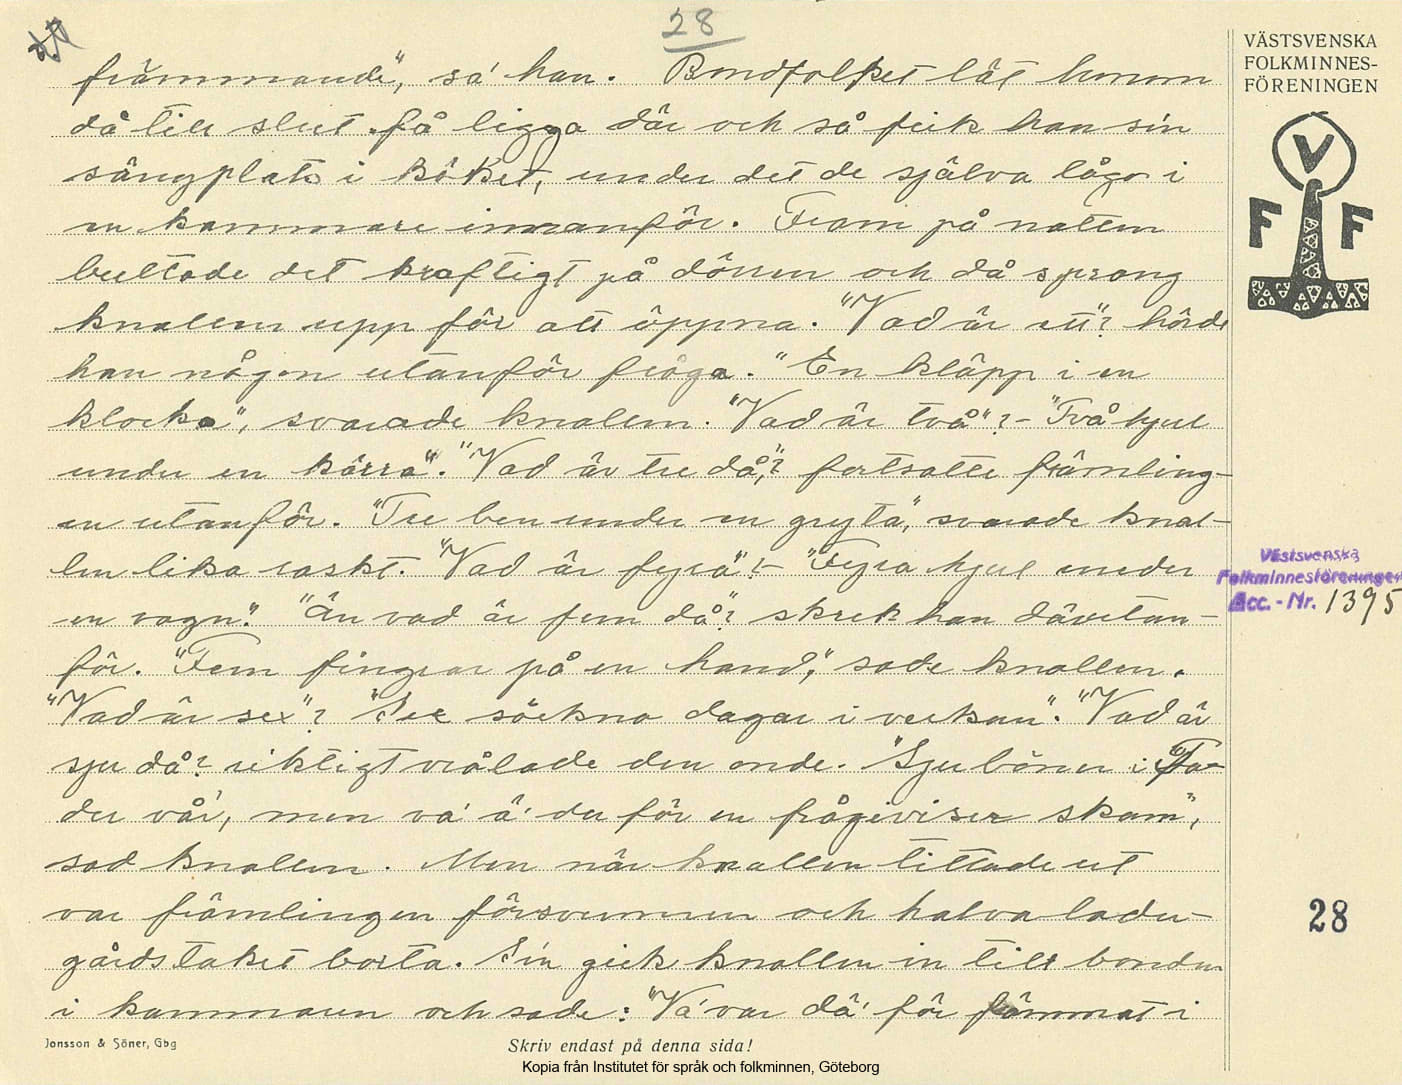 28
främmande", sa' han. Bondfolket lät honom
då till slut få ligga där och så fick han sin
sängplats i köket, under det de själva lågo i
en kammare innanför. Fram på natten
bultade det kraftigt på dörren och då sprang
knallen upp för att öppna. "Vad är ett"? hörde
han någon utanför fråga. "En kläpp i en
klocka", svarade knallen. "Vad är två"? - "Två hjul
under en kärra". "Vad är tre då", ? fortsatte främling-
en utanför. "Tre ben under en gryta", svarade knal-
len lika raskt. "Vad är fyra"? - "Fyra hjul under
en vagn". "Än vad är fem då"? skrek han därutan-
för. "Fem fingrar på en hand", sade knallen.
"Vad är sex"? "Sex söckna dagar i veckan". "Vad är
sju då? riktigt vrålade den onde. "Sju böner i "Fa-
der vår', men va' ä' du för en frågviser skam",
sad knallen. Men när knallen tittade ut
var främlingen försvunnen och halva ladu-
gårdstaket borta. Sin gick knallen in till bonden
i kammaren och sade: "Va' var dä' för främmat i
VÄSTSVENSKA
FOLKMINNES-
FÖRENINGEN
V
F F
Västsvenska
Folkminnesföreningen
Acc.-Nr. 1395
28
Jonsson & Söner, Gbg
Skriv endast på denna sida!
Kopia från Institutet för språk och folkminnen, Göteborg